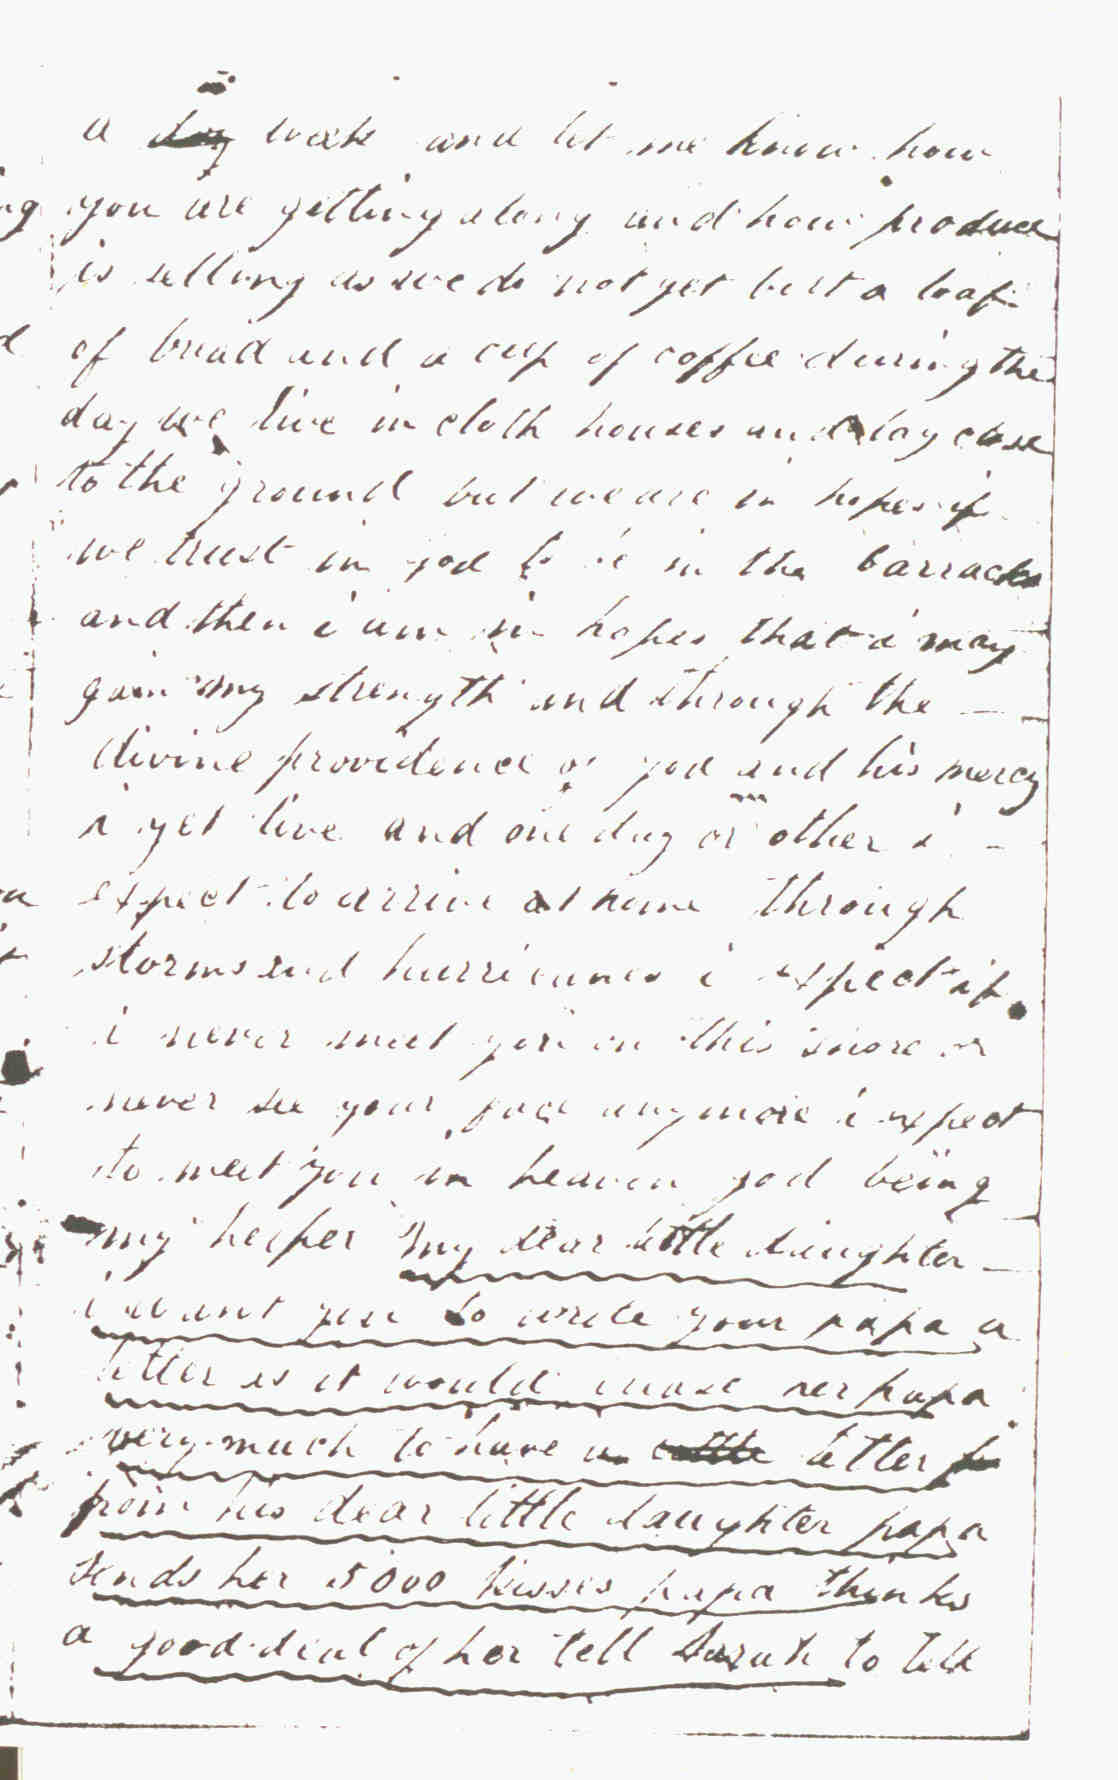 a day week and let me know how
you are getting along and how produce
is selling as we do not get but a loaf
of bread and a cup of coffee during the
day we live in cloth houses and lay close
to the ground but we are in hopes if
we trust in god to be in the barracks
and then i am in hopes that i may
gain my strength and through the
divine providence of god and his mercy
i yet live and one day or other i
expect to arrive at home through
storms and hurricanes i expect if
i never meet you on this shore or
never see your face anymore i expect
to meet you in heaven god being
my helper my dear little daughter
i want you to write your papa a
letter as it would please her papa
very much to have a little letter
from his dear little daughter papa
sends her 5000 kisses papa thinks
a good deal of her tell Sarah to tell